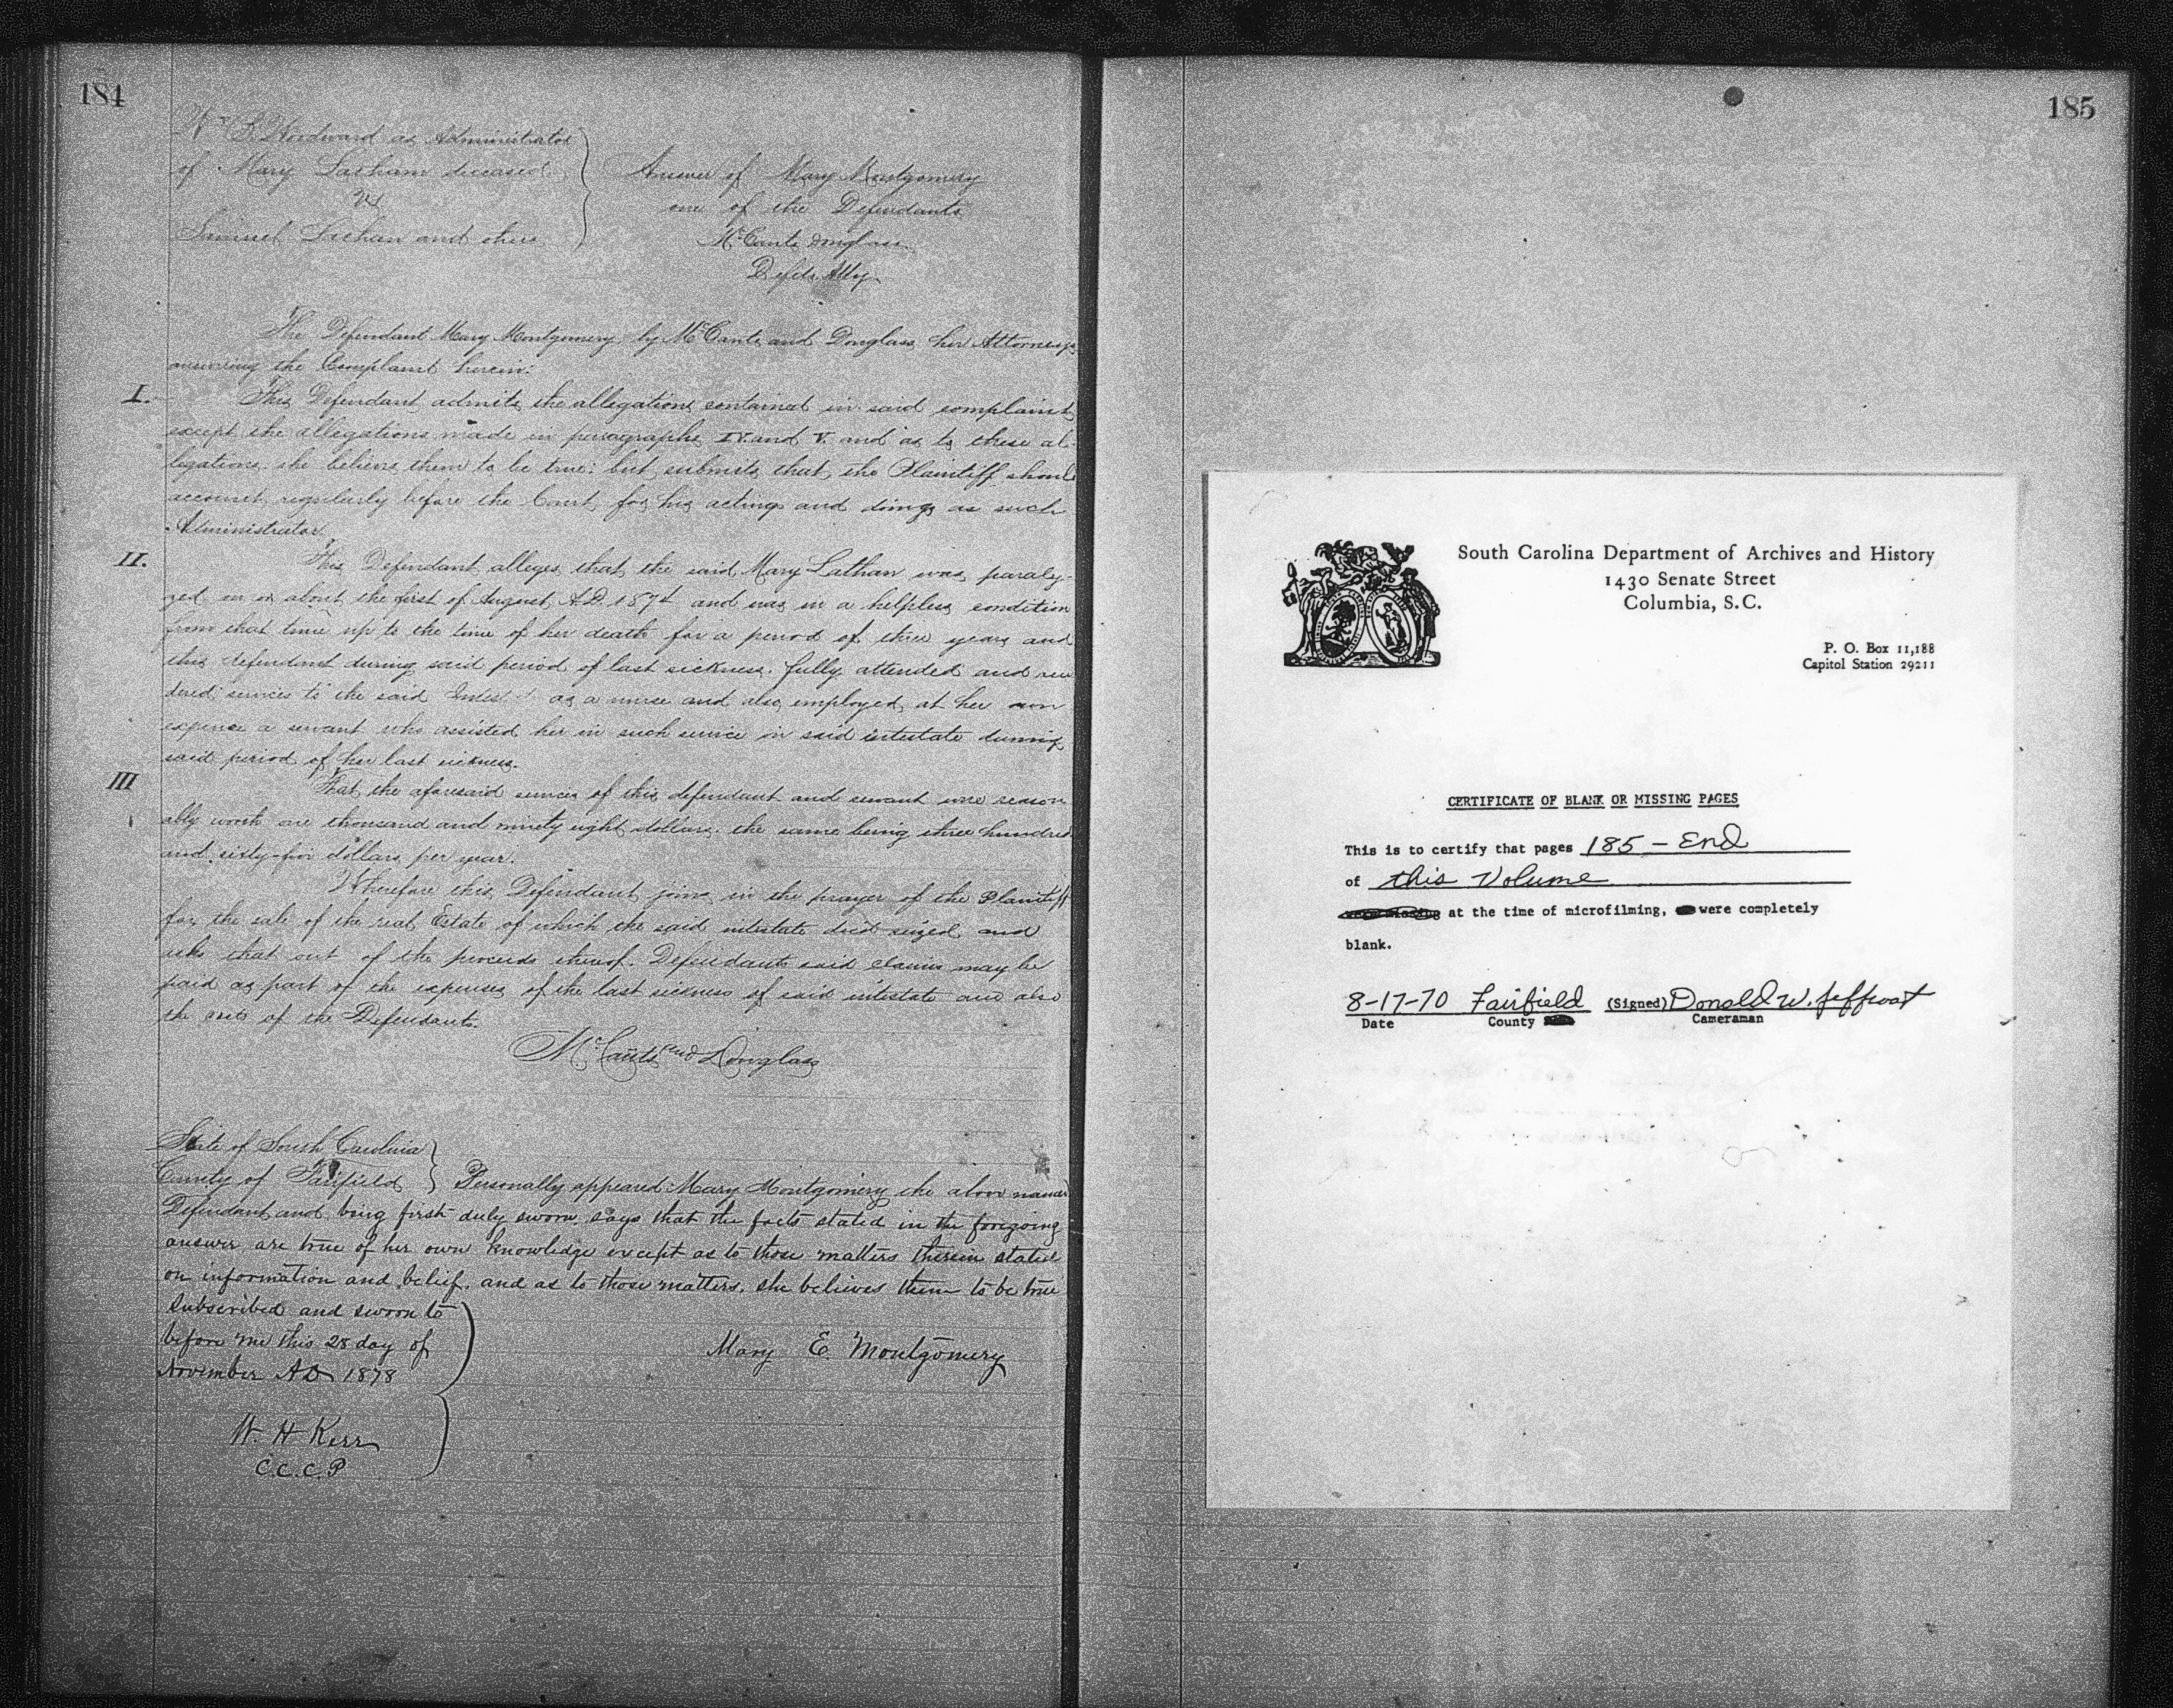 184
Wm. S. Woodward as Administrator
of Mary Lathan deceased
vs
Samuel Lathan and others
Answer of Mary Montgomery
one of the Defendants
McCants Douglass
Defts Atty
The Defendant Mary Montgomery by McCants and Douglass her Attorneys
answering the Complaint herein:
I. This Defendant admits the allegations contained in said complaint
except the allegations made in paragraphs IV. and V. and as to these al-
legations she believes them to be true: but submits that the Plaintiff should
account regularly before the Court for his actings and doings as such
Administrator.
II. This Defendant alleges that the said Mary Lathan was paraly-
zed on or about the first of August A.D. 1874 and was in a helpless condition
from that time up to the time of her death for a period of three years and
this defendant during said period of last sickness. fully attended and ren
dered services to the said as a nurse and also employed at her own
expense a servant who assisted her in such service on said intestate during
said period of her last sickness.
III That the aforesaid services of this defendant and servant were reason
ably worth one thousand and ninety eight dollars. the same being three hundred
and sixty-five dollars per year.
Wherefore this Defendant joins in the prayer of the Plaintiff
for the sale of the real Estate of which the said intestate died seized and
asks that out of the proceeds thereof. Defendants said claims may be
paid as part of the expenses of the last sickness of said intestate and also
the costs of the Defendants.
McCants and Douglass
State of South Carolina
County of Fairfield } Personally appeared Mary Montgomery the above named
Defendant and being first duly sworn says that the facts stated in the foregoing
answer are true of her own knowledge except as to those matters therein stated
on information and belief. and as to those matters. she believes them to be true
Subscribed and sworn to
before me this 28 day of
November AD 1878
Mary E. Montgomery
W. H Kerr
C.C.C.P
185
South Carolina Department of Archives and History
1430 Senate Street
Columbia, S.C.
P. O. Box 11,188
Capitol Station 29211
CERTIFICATE OF BLANK OR MISSING PAGES
This is to certify that pages 185 - End
of this Volume
at the time of microfilming, were completely
blank.
8-17-70 Fairfield (Signed) Donald W.
Date County Cameraman